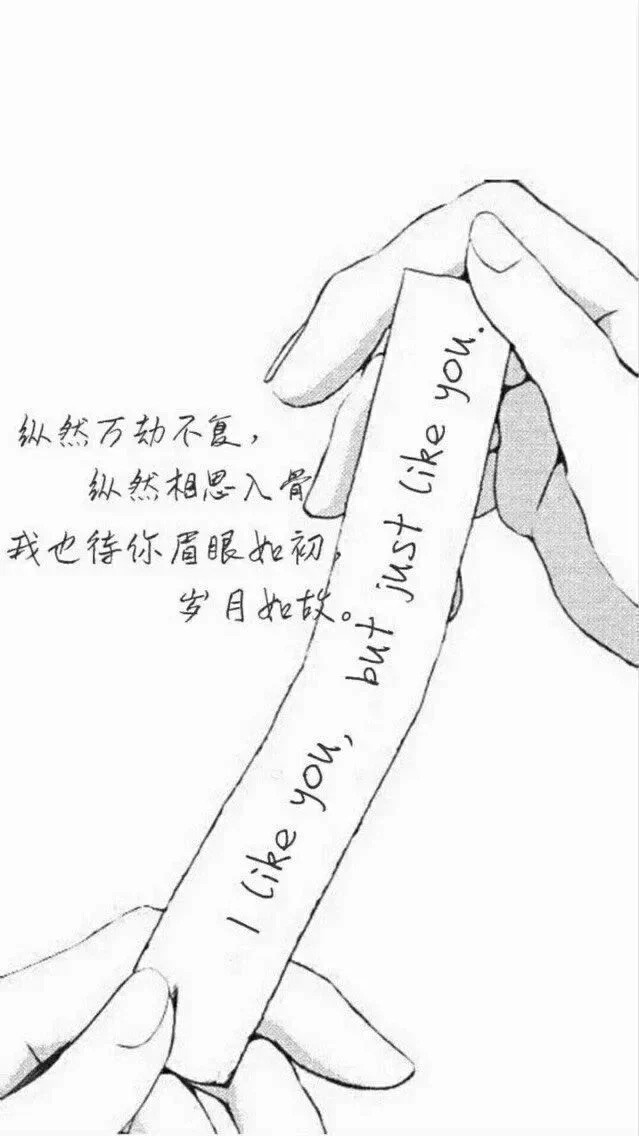 纵然万劫不复，
纵然相思入骨
我也待你眉眼如初，
岁月如故。
I like you, but just like you.